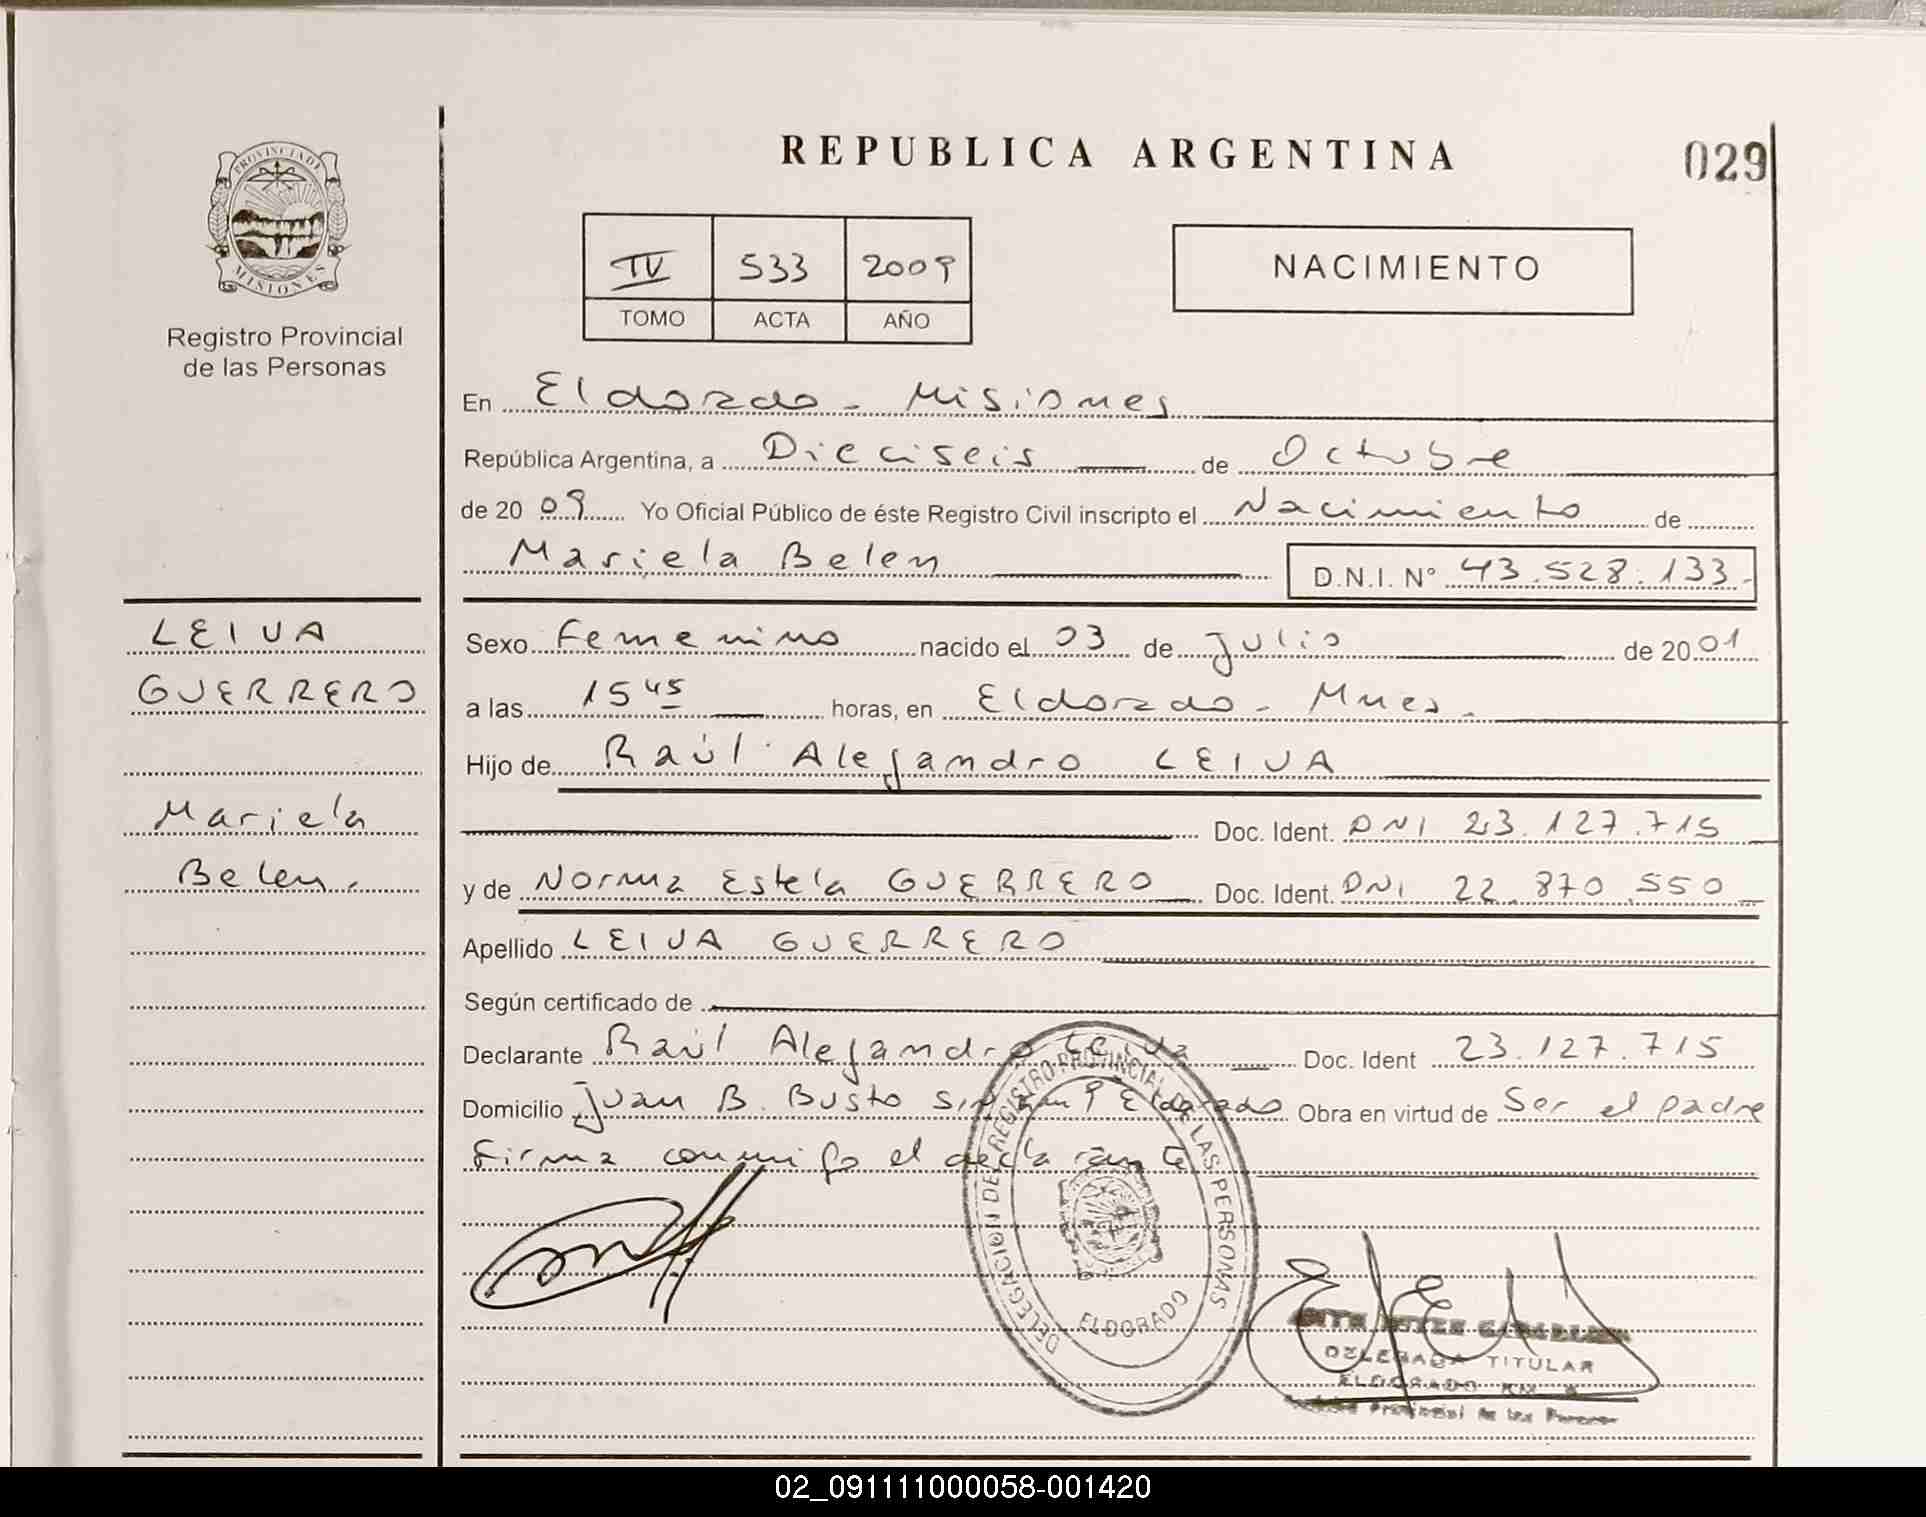 REPUBLICA ARGENTINA
029
PROVINCIA DE
MISIONES
Registro Provincial
de las Personas
IV 533 2009
TOMO ACTA AÑO
NACIMIENTO
En Eldorado - Misiones
República Argentina, a Dieciseis de Octubre
de 2009 Yo Oficial Público de éste Registro Civil inscripto el Nacimiento de
Mariela Belen D.N.I. N° 43.528.133.
LEIVA
GUERRERO
Mariela
Belen.
Sexo Femenino nacido el 03 de Julio de 2001
a las 15 45 horas, en Eldorado - Mnes.
Hijo de Raúl Alejandro LEIVA
Doc. Ident. DNI 23.127.715
y de Norma Estela GUERRERO Doc. Ident. DNI 22.870.550
Apellido LEIVA GUERRERO
Según certificado de
Declarante Raúl Alejandro Leiva Doc. Ident 23.127.715
Domicilio Juan B. Busto s/n Km 9 Eldorado Obra en virtud de Ser el padre
Firma conmigo el declarante
DELEGACION DEL REGISTRO PROVINCIAL DE LAS PERSONAS
ELDORADO
DELEGADA TITULAR
ELDORADO KM
Provincial de las Personas
02_091111000058-001420